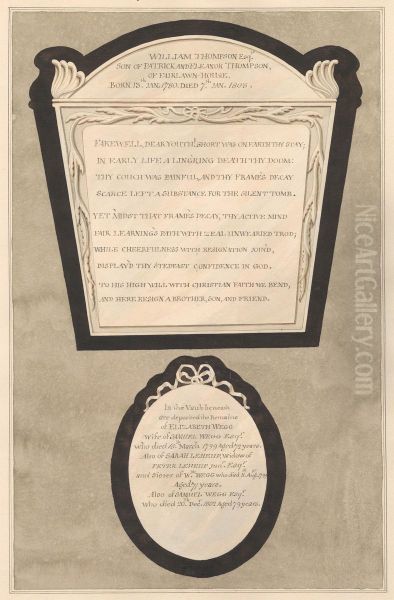 WILLIAM THOMPSON Esqr.
SON OF PATRICK AND ELEANOR THOMPSON,
OF FAIRLAWN-HOUSE.
BORN 15th JAN. 1780. DIED 7th JAN. 1803.
FAREWELL, DEAR YOUTH! SHORT WAS ON EARTH THY STAY;
IN EARLY LIFE A LING'RING DEATH THY DOOM:
THY COUCH WAS PAINFUL, AND THY FRAME'S DECAY
SCARCE LEFT A SUBSTANCE FOR THE SILENT TOMB.
YET 'MIDST THAT FRAME'S DECAY, THY ACTIVE MIND
FAIR LEARNING'S PATH WITH ZEAL UNWEARIED TROD;
WHILE CHEERFULNESS WITH RESIGNATION JOIN'D,
DISPLAY'D THY STEDFAST CONFIDENCE IN GOD.
TO HIS HIGH WILL WITH CHRISTIAN FAITH WE BEND,
AND HERE RESIGN A BROTHER, SON, AND FRIEND.
In the Vault beneath
are deposited the Remains
of ELIZABETH WEGG
Wife of SAMUEL WEGG Esqr.
who died March 1799 Aged 72 years.
Also of SARAH LEHEUP, Widow of
PETER LEHEUP Junr. Esqr.
and Sister of Mrs. WEGG who died
Aged years.
Also of SAMUEL WEGG Esqr.
Who died 20th Decr. 1802 Aged 79 years.
NiceArtGallery.com